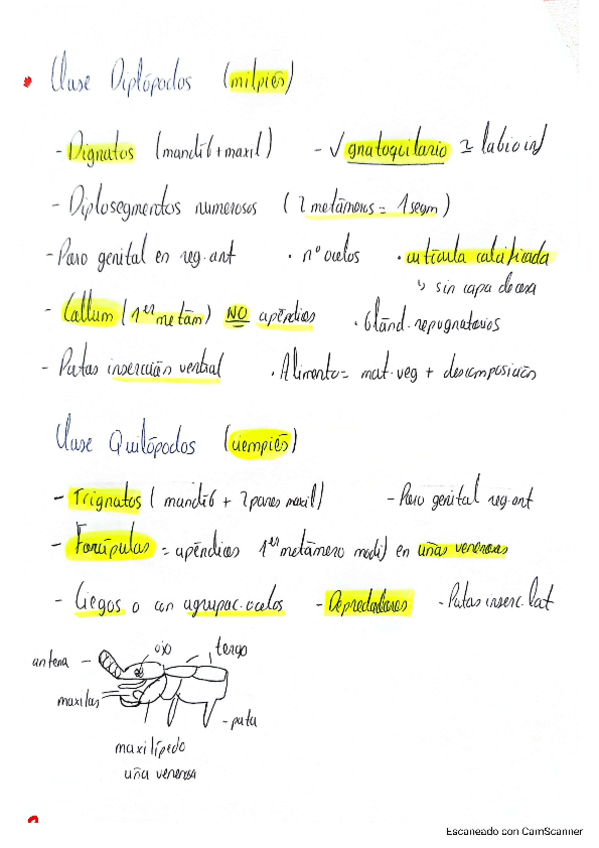 Clase Diplópodos (milpiés)
- Dignatos (mandíb + maxil) - √ gnatoquilario ≃ labio inf
- Diplosegmentos numerosos (2 metámeros = 1 segm)
- Poro genital en reg. ant · nº ocelos · cutícula calcificada
↳ sin capa de cera
- Collum (1er metám) NO apéndices · Gland. repugnatorias
- Patas inserción ventral · Alimento = mat. veg + descomposición
Clase Quilópodos (ciempiés)
- Trignatos (mandíb + 2 pares maxil) - Poro genital reg. ant
- Forcípulas = apéndices 1er metámero modif en uñas venenosas
- Ciegos o con agrupac. ocelos - Depredadores - Patas inserc. lat
ojo tergo
antena
maxilas
- pata
maxilípedo
uña venenosa
Escaneado con CamScanner